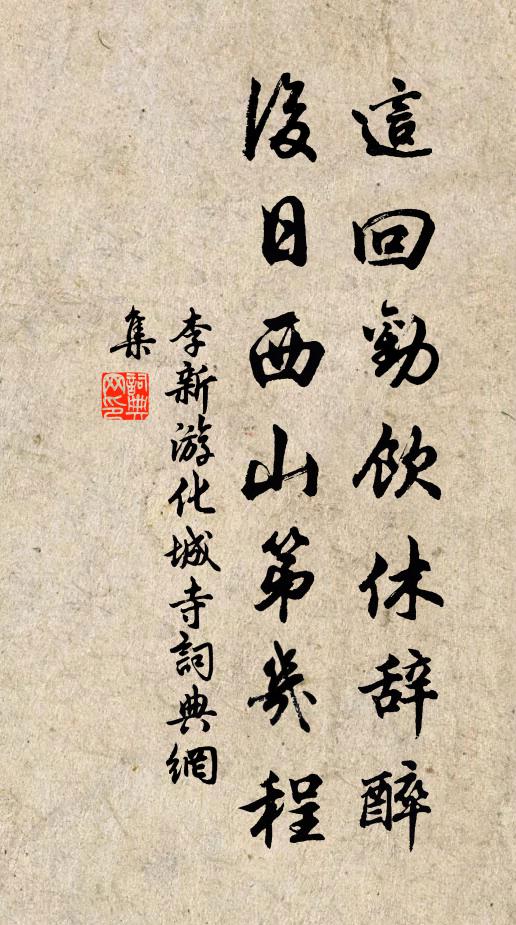 這回勸飲休辞醉
後日西山第幾程
李新游化城寺詞典網
集
詞典網印